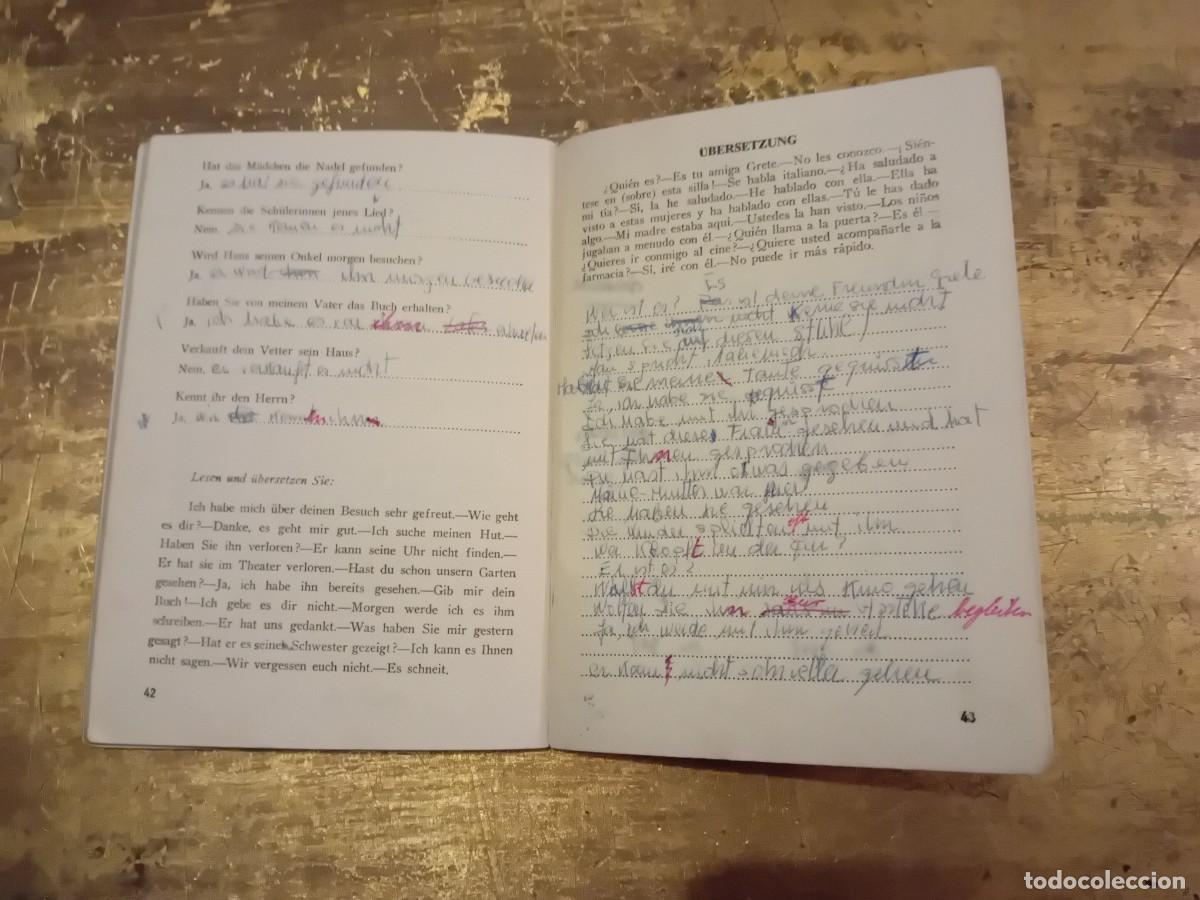 Hat das Mädchen die Nadel gefunden?
Ja, es hat sie gefunden
Kennen die Schülerinnen jenes Lied?
Nein, sie kenen es nicht
Wird Hans seinen Onkel morgen besuchen?
Ja, er wird ihn morgen
Haben Sie von meinem Vater das Buch erhalten?
Ja, ich habe es von ihm
Verkauft dein Vetter sein Haus?
Nein, er verkauft es nicht
Kennt ihr den Herrn?
Ja, wir
Lesen und übersetzen Sie:
Ich habe mich über deinen Besuch sehr gefreut.—Wie geht
es dir?—Danke, es geht mir gut.—Ich suche meinen Hut.—
Haben Sie ihn verloren?—Er kann seine Uhr nicht finden.—
Er hat sie im Theater verloren.—Hast du schon unsern Garten
gesehen?—Ja, ich habe ihn bereits gesehen.—Gib mir dein
Buch!—Ich gebe es dir nicht.—Morgen werde ich es ihm
schreiben.—Er hat uns gedankt.—Was haben Sie mir gestern
gesagt?—Hat er es seiner Schwester gezeigt?—Ich kann es Ihnen
nicht sagen.—Wir vergessen euch nicht.—Es schneit.
42
ÜBERSETZUNG
¿Quién es?—Es tu amiga Grete.—No les conozco.—¡Sién-
tese en (sobre) esta silla!—Se habla italiano.—¿Ha saludado a
mi tía?—Sí, la he saludado.—He hablado con ella.—Ella ha
visto a estas mujeres y ha hablado con ellas.—Tú le has dado
algo.—Mi madre estaba aquí.—Ustedes la han visto.—Los niños
jugaban a menudo con él.—¿Quién llama a la puerta?—Es él.—
¿Quieres ir conmigo al cine?—¿Quiere usted acompañarle a la
farmacia?—Sí, iré con él.—No puede ir más rápido.
Wer ist es? Es ist deine Freundin Grete
Ich kenne sie nicht
Setzen Sie auf diesen Stuhl!
Man spricht italienisch
Haben sie meine Tante gegrüsst
Ja, ich habe sie gegrüsst
Ich habe mit ihr gesprochen
Sie hat diese Frauen gesehen und hat
mit Ihnen gesprochen
Du hast ihm etwas gegeben
Meine Mutter war hier
Sie haben sie gesehen
Die Kinder spielten oft mit ihm
Wer klopft an der Tür?
Er ist es?
Willst du mit mir ins Kino gehen
Wollen Sie ihn zur Apoteke begleiten
Ja, ich werde mit ihm gehen
er kann nicht schneller gehen
43
todocoleccion